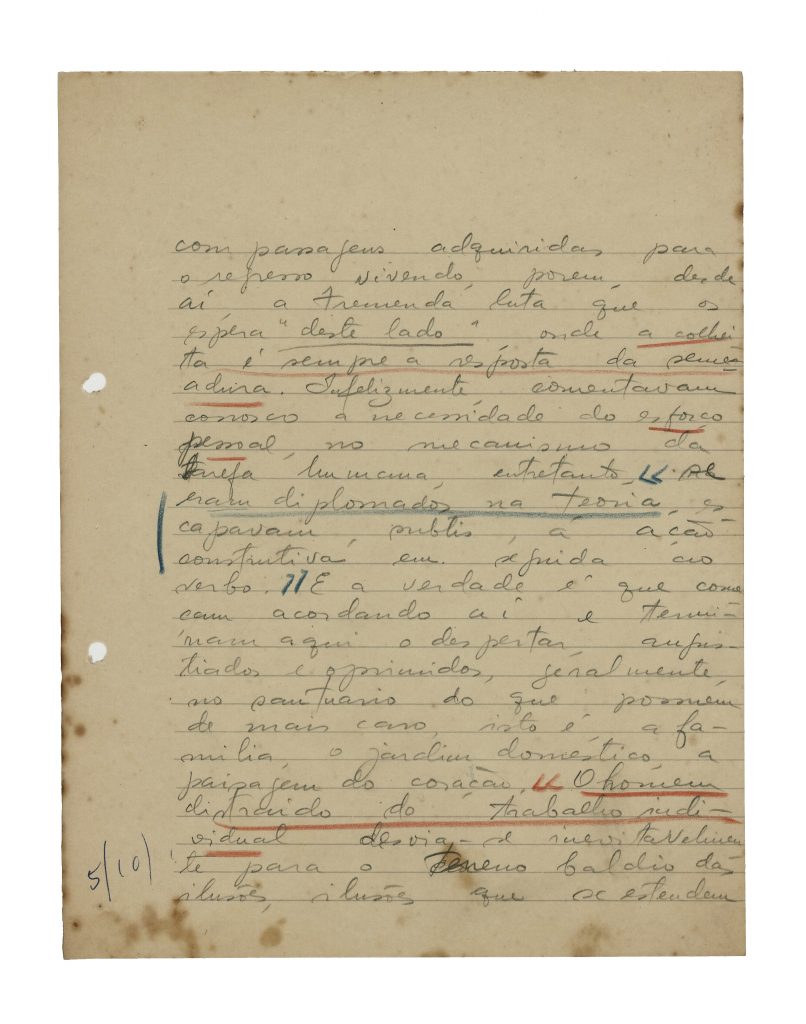 com passagens adquiridas para
o regresso vivendo, porem, desde
aí, a tremenda luta que os
espera "deste lado" onde a colhei
ta é sempre a resposta da seme
adura. Infelizmente, comentavam
conosco a necessidade do esforço
pessoal, no mecanismo da
tarefa humana, entretanto, se
eram diplomados na teoria, es
capavam, subtis, á ação
construtiva em seguida ao
verbo. E a verdade é que come
çam acordando aí e termi-
nam aqui o despertar, angus-
tiados e oprimidos, geralmente,
no santuario do que possuem
de mais caro, isto é, a fa-
milia, o jardim doméstico, a
paisagem do coração. O homem
distraido do trabalho indi-
vidual desvia-se inevitavelmen
te para o terreno baldio das
ilusões, ilusões que se estendem
5/(10)